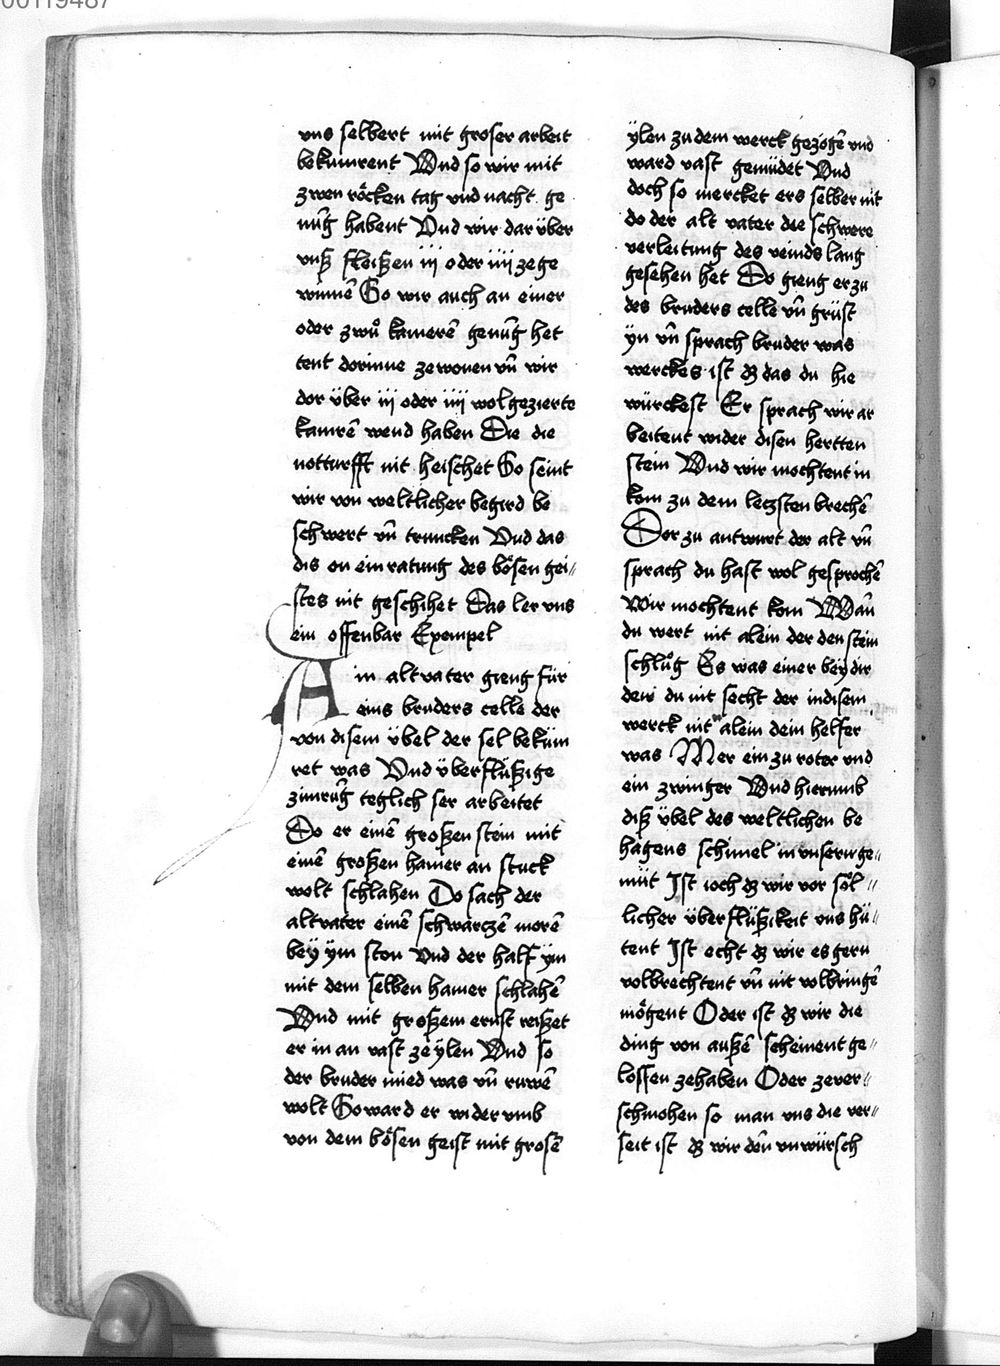 00119487
vns selbert mit groser arbeit
bekumrent Vnd so wir mit
zwen röcken tag vnd nacht ge
nu̅g habent Vnd wir dar über
vnß fleißen iij oder iiij ze ge
winnē So wir auch an einer
oder zwů kamerē genu̅g het
tent dorinne ze wonen vn̄ wir
dor über iij oder iiij wolgezierte
kamrē wend haben Die die
notturfft nit heischet So seint
wir von weltlicher begird be
schwert vn̄ truncken Vnd das
dis on ein ratung des bösen gei〃
stes nit geschihet Das ler vns
ein offenbar Exempel
Ain altvater gieng für
eins bruders celle der
von disem übel der sel beküm
ret was Vnd überflüßige
zimru̅g teglich ser arbeitet
Do er einē großen stein mit
einē großen hamer an stuck
wolt schlahen Do sach der
altvater einē schwarczē morē
beÿ ÿm ston Vnd der half ÿm
mit dem selben hamer schlahē
Vnd mit großem ernst reißet
er in an vast ze ÿlen Vnd so
der bruder mied was vn̄ ruwē
wolt So ward er widervmb
von dem bösen geist mit grosē
ÿlen zu dem werck gezogē vnd
ward vast gemüdet Vnd
doch so mercket ers selber nit
do der alt vater die schwere
verleitung des veinds lang
gesehen het Do gieng er zu
des bruders celle vn̄ grüst
ÿn vn̄ sprach bruder was
werckes ist dz das du hie
würckest Er sprach wir ar
beitent wider disen hertten
stein Vnd wir mochtent in
kom zu dem leczsten brechē
Dor zu antwurt der alt vn̄
sprach du hast wol gesprochē
Wir mochtent kom Wan̄
du wert nit alein der den stein
schlůg Es was einer beÿ dir
den du nit secht der in disem
werck nit alein dein helfer
was Mer ein zu roter vnd
ein zwinger Vnd hierumb
diß übel des weltlichen be
hagens schimel in vnserm ge〃
müt Ist ioch dz wir vor söl〃
licher überflüßikeit vns hü〃
tent Ist echt dz wir es gern
volbrechtent vn̄ nit volbringē
mögent Oder ist dz wir die
ding von außē scheinent ge〃
lossen ze haben Oder ze ver〃
schmohen so man vns die ver〃
seit ist dz wir den̄ vnwürsch